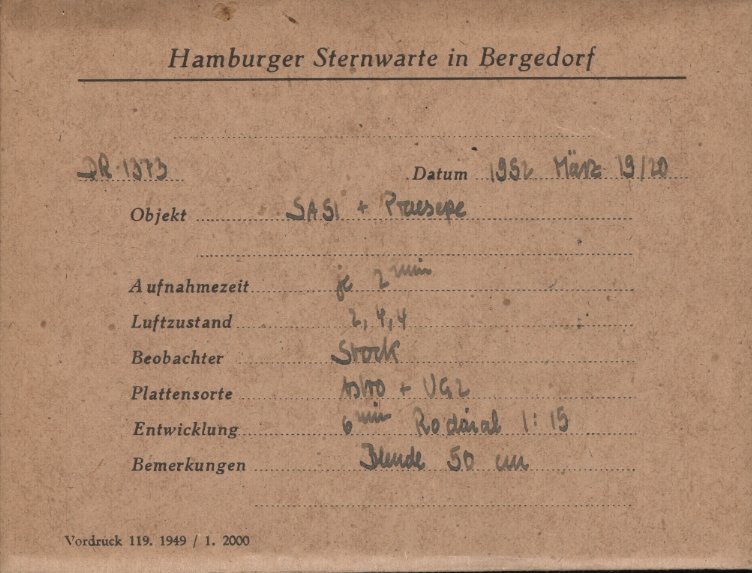 Hamburger Sternwarte in Bergedorf
DR 1373 Datum 1952 März 19/20
Objekt SA51 + Praesepe
Aufnahmezeit je 2 min
Luftzustand 2, 4, 4
Beobachter Stock
Plattensorte Astro + UG2
Entwicklung 6 min Rodinal 1:15
Bemerkungen Blende 50 cm
Vordruck 119. 1949 / 1. 2000